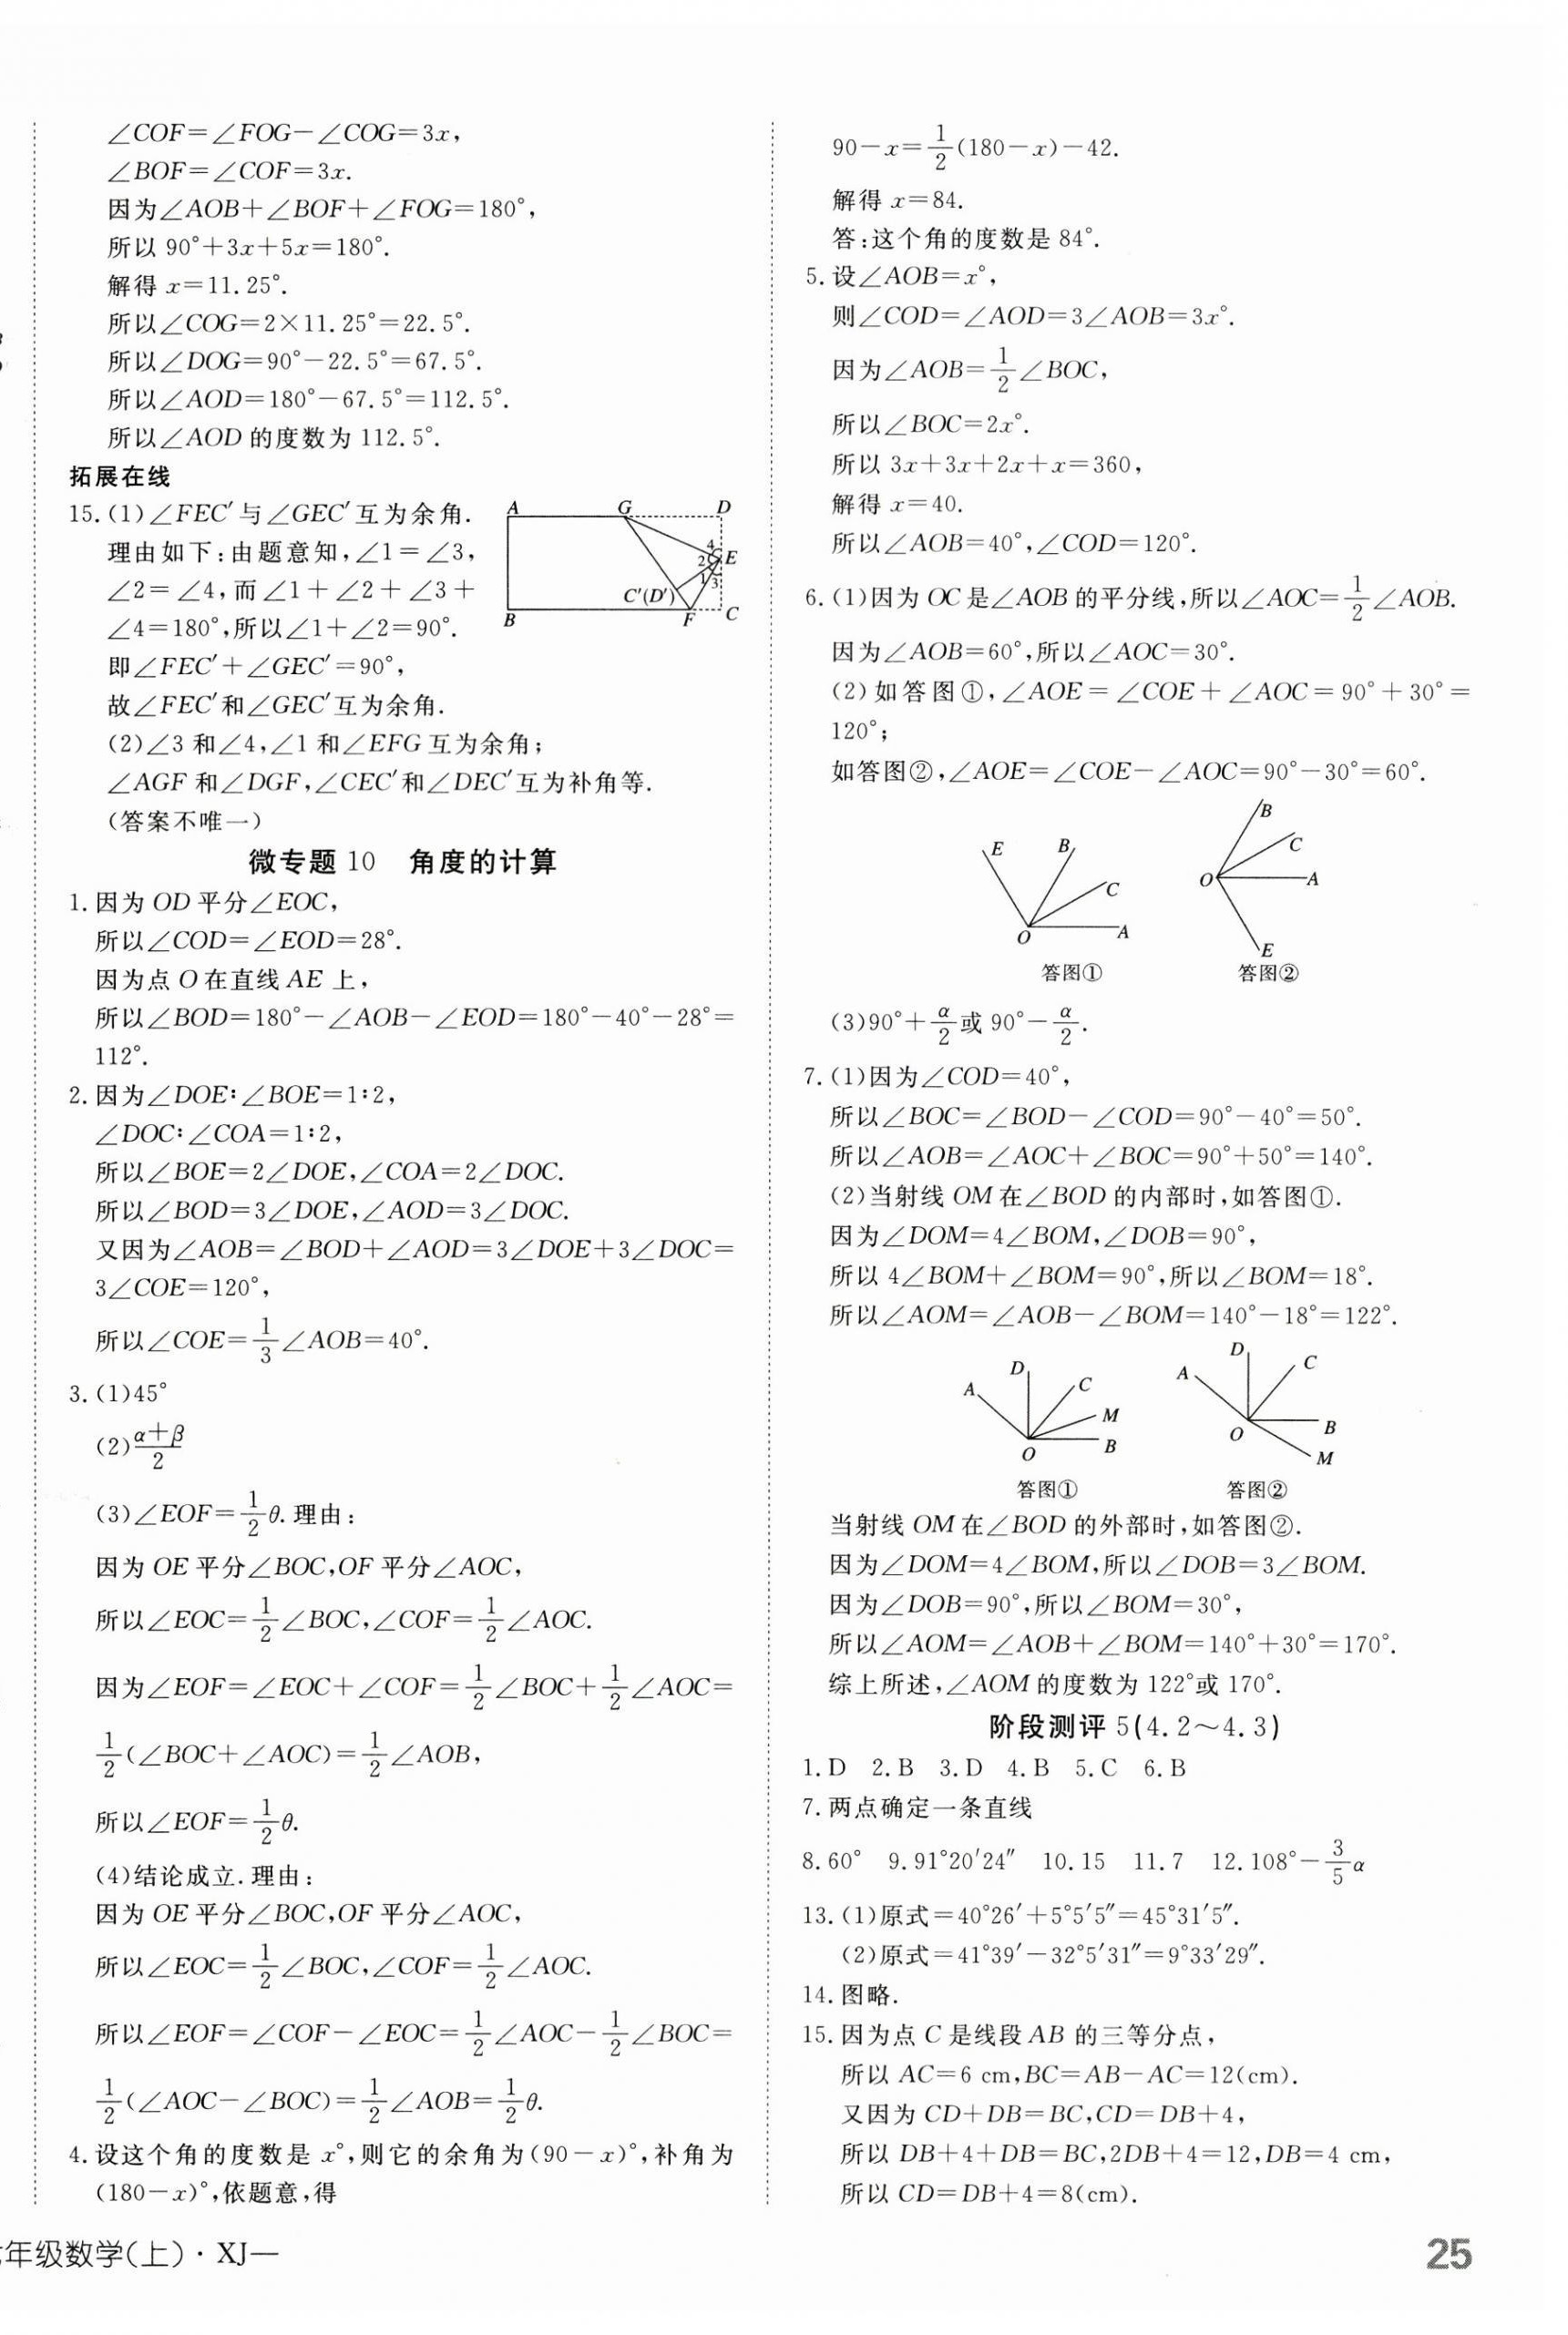 ∠COF=∠FOG-∠COG=3x,
∠BOF=∠COF=3x.
因为∠AOB+∠BOF+∠FOG=180°,
所以 90°+3x+5x=180°.
解得 x=11.25°.
所以∠COG=2×11.25°=22.5°.
所以∠DOG=90°-22.5°=67.5°.
所以∠AOD=180°-67.5°=112.5°.
所以∠AOD 的度数为 112.5°.
拓展在线
15.(1)∠FEC′与∠GEC′互为余角.
理由如下:由题意知,∠1=∠3,
∠2=∠4,而∠1+∠2+∠3+
∠4=180°,所以∠1+∠2=90°.
即∠FEC′+∠GEC′=90°,
故∠FEC′和∠GEC′互为余角.
A G D
4
2 E
1 3
C′(D′)
B F C
(2)∠3 和∠4,∠1 和∠EFG 互为余角;
∠AGF 和∠DGF,∠CEC′和∠DEC′互为补角等.
(答案不唯一)
微专题 10 角度的计算
1.因为 OD 平分∠EOC,
所以∠COD=∠EOD=28°.
因为点 O 在直线 AE 上,
所以∠BOD=180°-∠AOB-∠EOD=180°-40°-28°=
112°.
2.因为∠DOE∶∠BOE=1∶2,
∠DOC∶∠COA=1∶2,
所以∠BOE=2∠DOE,∠COA=2∠DOC.
所以∠BOD=3∠DOE,∠AOD=3∠DOC.
又因为∠AOB=∠BOD+∠AOD=3∠DOE+3∠DOC=
3∠COE=120°,
所以∠COE=1/3∠AOB=40°.
3.(1)45°
(2)(α+β)/2
(3)∠EOF=1/2θ.理由:
因为 OE 平分∠BOC,OF 平分∠AOC,
所以∠EOC=1/2∠BOC,∠COF=1/2∠AOC.
因为∠EOF=∠EOC+∠COF=1/2∠BOC+1/2∠AOC=
1/2(∠BOC+∠AOC)=1/2∠AOB,
所以∠EOF=1/2θ.
(4)结论成立.理由:
因为 OE 平分∠BOC,OF 平分∠AOC,
所以∠EOC=1/2∠BOC,∠COF=1/2∠AOC.
所以∠EOF=∠COF-∠EOC=1/2∠AOC-1/2∠BOC=
1/2(∠AOC-∠BOC)=1/2∠AOB=1/2θ.
4.设这个角的度数是 x°,则它的余角为(90-x)°,补角为
(180-x)°,依题意,得
90-x=1/2(180-x)-42.
解得 x=84.
答:这个角的度数是 84°.
5.设∠AOB=x°,
则∠COD=∠AOD=3∠AOB=3x°.
因为∠AOB=1/2∠BOC,
所以∠BOC=2x°.
所以 3x+3x+2x+x=360,
解得 x=40.
所以∠AOB=40°,∠COD=120°.
6.(1)因为 OC 是∠AOB 的平分线,所以∠AOC=1/2∠AOB.
因为∠AOB=60°,所以∠AOC=30°.
(2)如答图①,∠AOE=∠COE+∠AOC=90°+30°=
120°;
如答图②,∠AOE=∠COE-∠AOC=90°-30°=60°.
E B C O A
答图①
B C O A E
答图②
(3)90°+α/2或 90°-α/2.
7.(1)因为∠COD=40°,
所以∠BOC=∠BOD-∠COD=90°-40°=50°.
所以∠AOB=∠AOC+∠BOC=90°+50°=140°.
(2)当射线 OM 在∠BOD 的内部时,如答图①.
因为∠DOM=4∠BOM,∠DOB=90°,
所以 4∠BOM+∠BOM=90°,所以∠BOM=18°.
所以∠AOM=∠AOB-∠BOM=140°-18°=122°.
A D C M O B
答图①
A D C O B M
答图②
当射线 OM 在∠BOD 的外部时,如答图②.
因为∠DOM=4∠BOM,所以∠DOB=3∠BOM.
因为∠DOB=90°,所以∠BOM=30°,
所以∠AOM=∠AOB+∠BOM=140°+30°=170°.
综上所述,∠AOM 的度数为 122°或 170°.
阶段测评 5(4.2～4.3)
1.D 2.B 3.D 4.B 5.C 6.B
7.两点确定一条直线
8.60° 9.91°20′24″ 10.15 11.7 12.108°-3/5α
13.(1)原式=40°26′+5°5′5″=45°31′5″.
(2)原式=41°39′-32°5′31″=9°33′29″.
14.图略.
15.因为点 C 是线段 AB 的三等分点,
所以 AC=6 cm,BC=AB-AC=12(cm).
又因为 CD+DB=BC,CD=DB+4,
所以 DB+4+DB=BC,2DB+4=12,DB=4 cm,
所以 CD=DB+4=8(cm).
年级数学(上)·XJ—
25